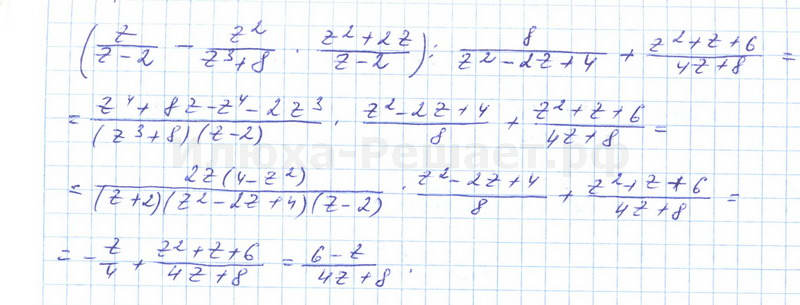 (z/(z-2) - z²/(z³+8) · (z²+2z)/(z-2)) : 8/(z²-2z+4) + (z²+z+6)/(4z+8) =
= (z⁴+8z-z⁴-2z³)/((z³+8)(z-2)) · (z²-2z+4)/8 + (z²+z+6)/(4z+8) =
илюха-Решает.рф
= 2z(4-z²)/((z+2)(z²-2z+4)(z-2)) · (z²-2z+4)/8 + (z²+z+6)/(4z+8) =
= -z/4 + (z²+z+6)/(4z+8) = (6-z)/(4z+8).